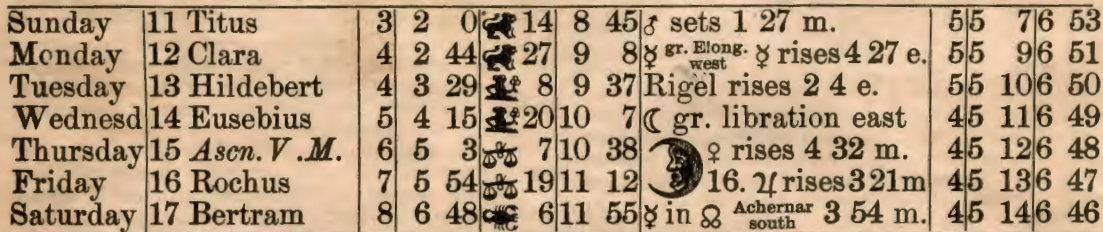 Sunday 11 Titus 3 2 0 14 8 45 ♂ sets 1 27 m. 5 5 7 6 53
Monday 12 Clara 4 2 44 27 9 8 ☿ gr. Elong. west ☿ rises 4 27 e. 5 5 9 6 51
Tuesday 13 Hildebert 4 3 29 8 9 37 Rigel rises 2 4 e. 5 5 10 6 50
Wednesd 14 Eusebius 5 4 15 20 10 7 ☾ gr. libration east 4 5 11 6 49
Thursday 15 Ascn. V. M. 6 5 3 7 10 38 ♀ rises 4 32 m. 4 5 12 6 48
Friday 16 Rochus 7 5 54 19 11 12 16. ♃ rises 3 21 m 4 5 13 6 47
Saturday 17 Bertram 8 6 48 6 11 55 ☿ in ☊ Achernar south 3 54 m. 4 5 14 6 46